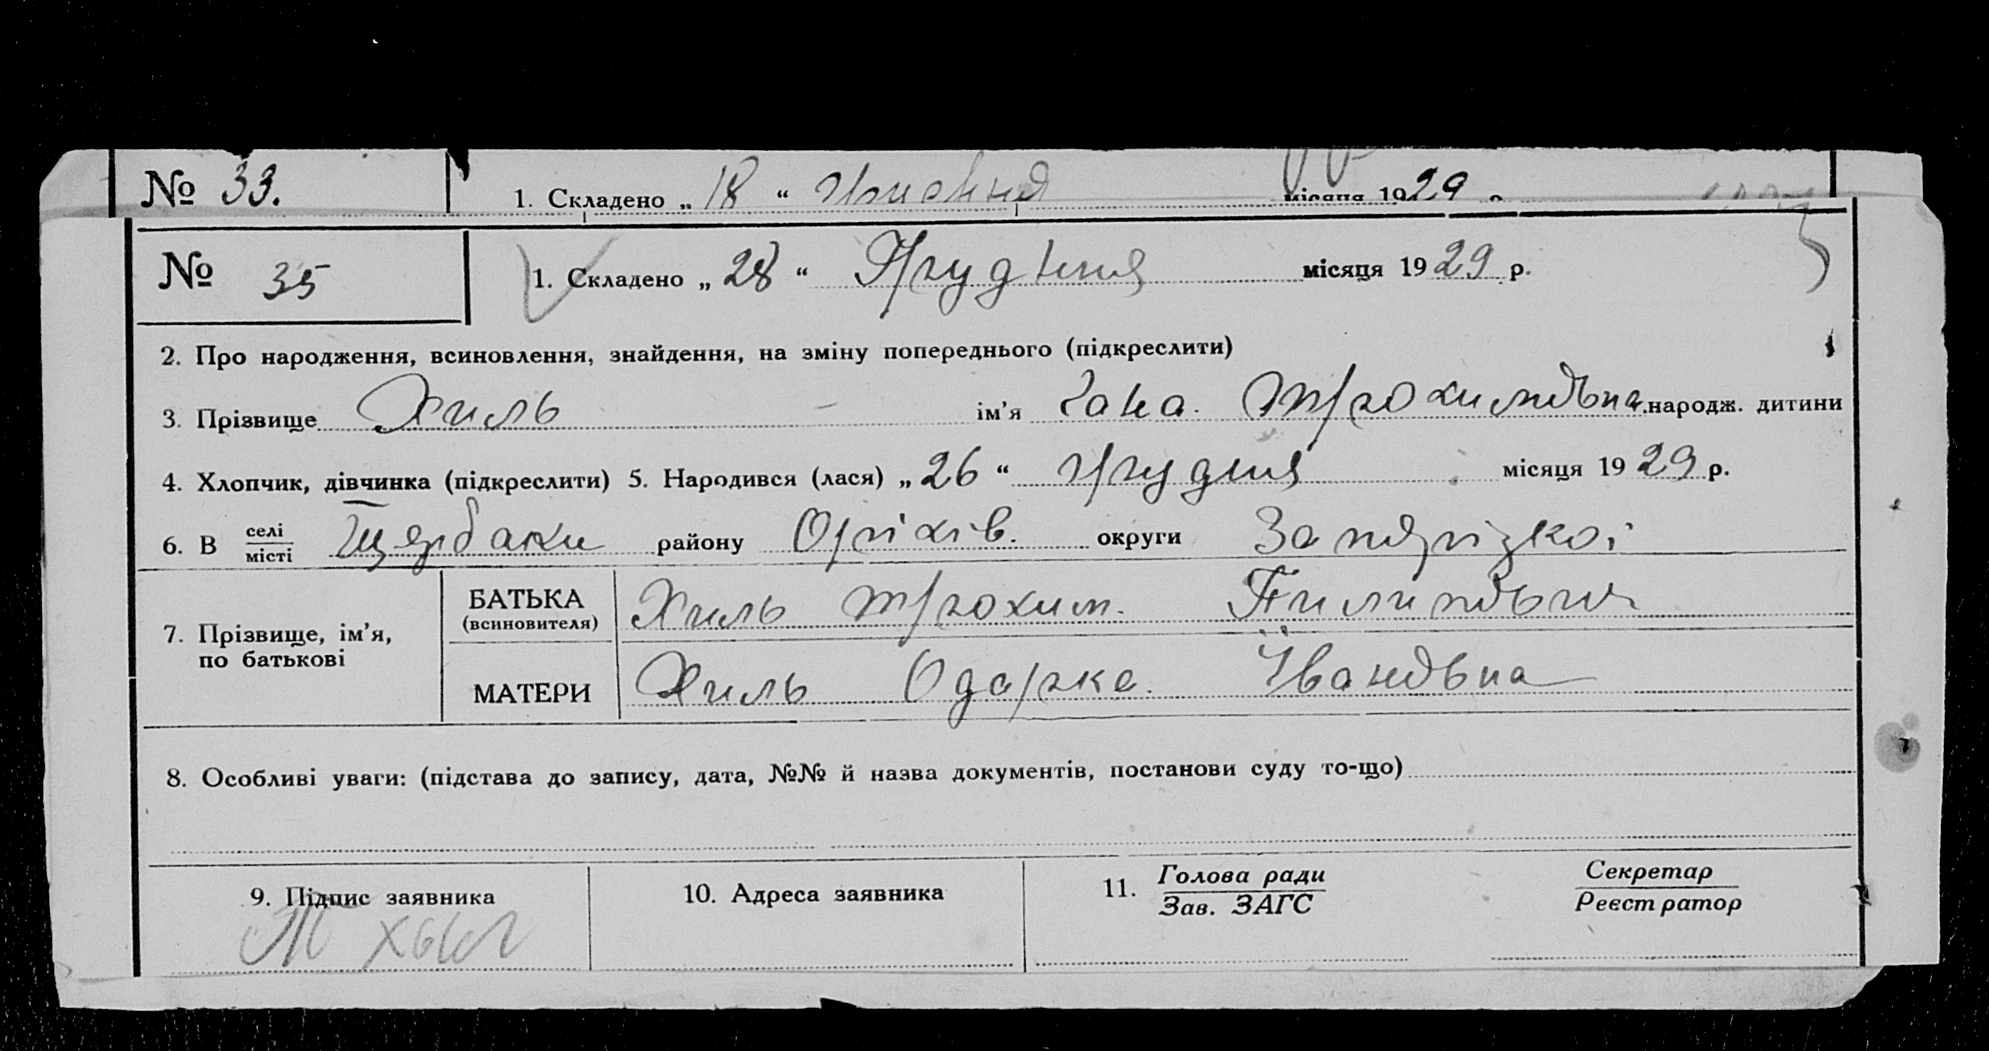 № 33. 1. Складено „ 18 “ місяця 1929 р.
№ 35 1. Складено „ 28 “ Грудння місяця 1929 р.
2. Про народження, всиновлення, знайдення, на зміну попереднього (підкреслити)
3. Прізвище Хиль ім’я Гана. Трохимовна народж. дитини
4. Хлопчик, дівчинка (підкреслити) 5. Народився (лася) „ 26 “ грудня місяця 1929 р.
6. В селі/місті Щербаки району Оріхів. округи Запорізкої
7. Прізвище, ім’я, по батькові
БАТЬКА (всиновителя) Хиль Трохим. Пилипович
МАТЕРИ Хиль Одарка. Івановна
8. Особливі уваги: (підстава до запису, дата, №№ й назва документів, постанови суду то-що)
9. Підпис заявника 10. Адреса заявника 11. Голова ради/Зав. ЗАГС Секретар/Реєстратор